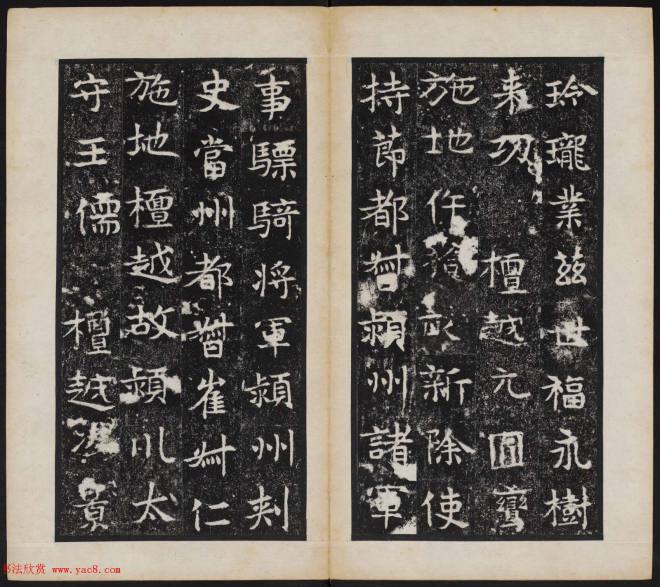 玲瓏業茲世福永樹
来刃 檀越元圓寶
施地仵拾畝新除使
持節都督潁州諸軍
事驃騎将軍潁州刺
史當州都督崔叔仁
施地檀越故潁川太
守王儒 檀越洪景
书法欣赏 www.yac8.com